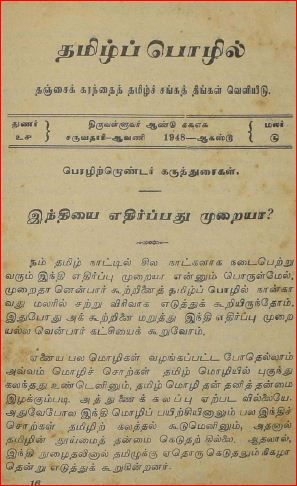 தமிழ்ப் பொழில்
தஞ்சைக் கரந்தைத் தமிழ்ச் சங்கத் திங்கள் வெளியீடு.
துணர் } திருவள்ளுவர் ஆண்டு ௧௯௭௯ { மலர்
௨௪ } சருவதாரி-ஆவணி 1948—ஆகஸ்டு { ௫
பொழிற்றொண்டர் கருத்துரைகள்.
இந்தியை எதிர்ப்பது முறையா?
நம் தமிழ் நாட்டில் சில நாட்களாக நடைபெற்று
வரும் இந்தி எதிர்ப்பு முறையா என்னும் பொருள்மேல்,
முறைதா னென்பார் கூற்றினைத் தமிழ்ப் பொழில் நான்கா
வது மலரில் சற்று விரிவாக எடுத்துக் கூறியிருந்தோம்.
இதுபோது அக் கூற்றினை மறுத்து இந்தி எதிர்ப்பு முறை
யல்ல வென்பார் கட்சியைக் கூறுவோம்.
ஏனைய பல மொழிகள் வழங்கப்பட்ட போதெல்லாம்
அவ்வம் மொழிச் சொற்கள் தமிழ் மொழியில் புகுந்து
கலந்தது உண்டெனினும், தமிழ் மொழி தன் தனித் தன்மை
இழக்கும்படி அத் துணைக் கலப்பு ஏற்பட வில்லையே.
அதுவேபோல இந்தி மொழிப் பயிற்சியினாலும் பல இந்திச்
சொற்கள் தமிழிற் கலத்தல் கூடுமெனினும், அதனால்
தமிழின் தூய்மைத் தன்மை கெடுதற் கில்லை. ஆதலால்,
இந்தி நுழைதலினால் தமிழுக்கு ஏதொரு கெடுதலும் நிகழா
தென்று எடுத்துக் கூறுகின்றனர்.
16